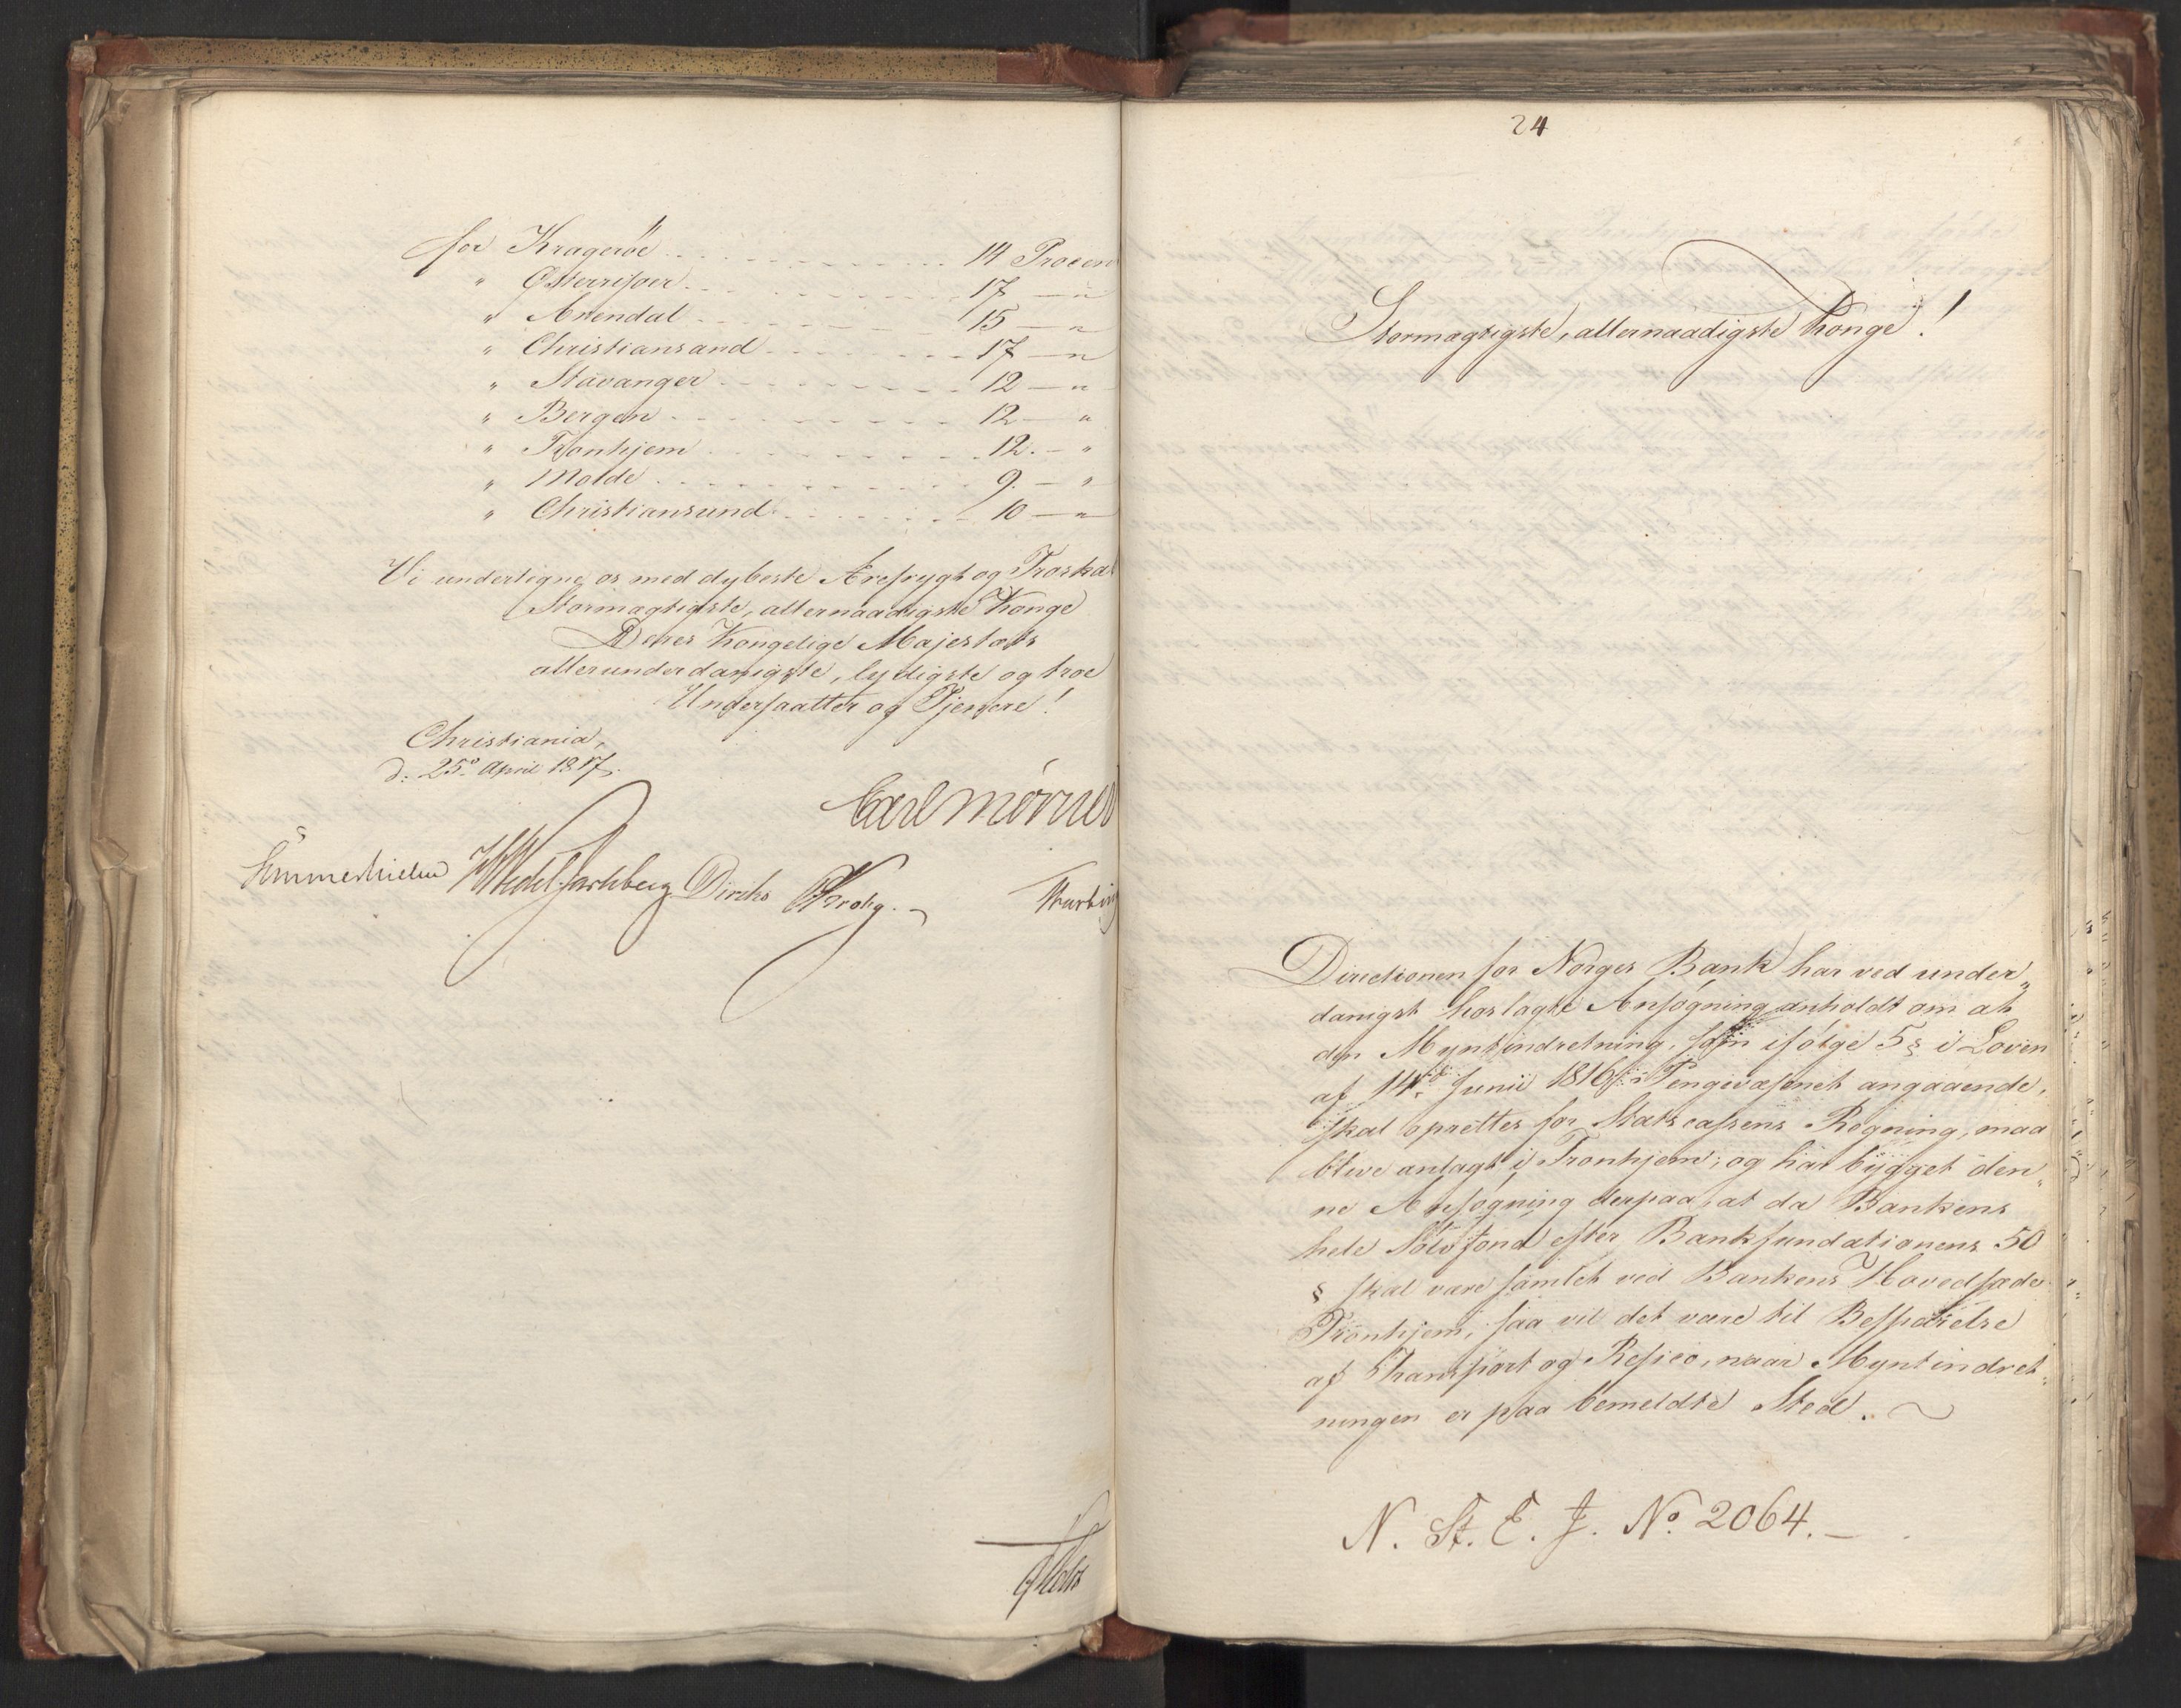 for Kragerøe . . . . . . . . . . . 14 Procen
" Østerriisøer . . . . . . . . . 17 — "
" Arendal . . . . . . . . . . 15 — "
" Christiansand . . . . . . . 17 — "
" Stavanger . . . . . . . . . 12 — "
" Bergen . . . . . . . . . . 12 — "
" Tronhjem . . . . . . . . . 12. — "
" Molde . . . . . . . . . . 9. — "
" Christiansund . . . . . . . 10 — "
Vi undertegne os med dybeste Ærefrygt og Troskab
Stormægtigste, allernaadigste Konge
Deres Kongelige Majestæts
allerunderdanigste, lydigste og troe
Undersaatter og Tjenere!
Christiania,
d: 25° April 1817.
Carl Mörner
Sommerhielm HWedel Jarlsberg Diriks CKrohg. Thurbin
24
Stormægtigste, allernaadigste Konge!
Directionen for Norges Bank har ved under„
danigst hoslagte Ansøgning anholdt om at
den Myntindretning, som ifølge 5 § i Loven
af 14de Junii 1816 Pengevæsenet angaaende,
skal oprettes for Statscassens Regning, maa
blive anlagt i Tronhjem; og har bygget den„
ne Ansøgning derpaa, at da Bankens
hele Sølvfond efter Bankfundationens 50
§ skal være samlet ved Bankens Hovedsæde
Tronhjem, saa vil det være til Besparelse
af Transport og Resico, naar Myntindret„
ningen er paa bemeldte Sted.
N. St. E. J. No. 2064. —